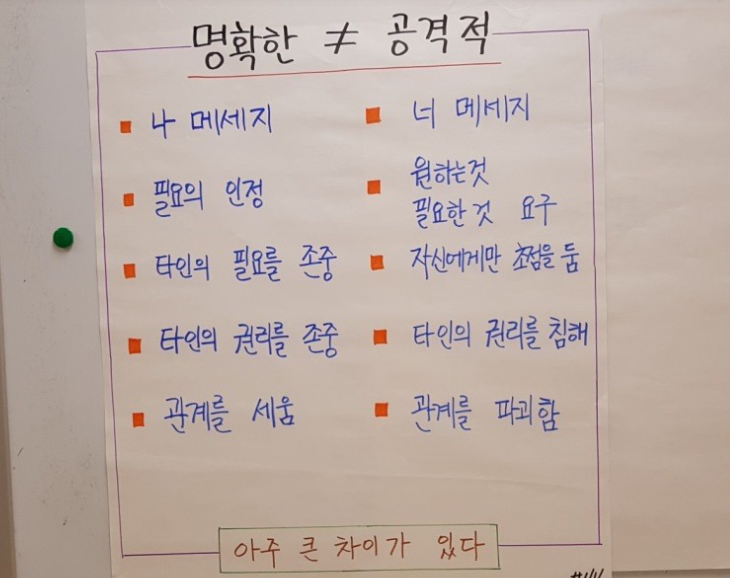 명확한 ≠ 공격적
나 메세지
너 메세지
필요의 인정
원하는것
필요한것 요구
타인의 필요를 존중
자신에게만 초점을 둠
타인의 권리를 존중
타인의 권리를 침해
관계를 세움
관계를 파괴함
아주 큰 차이가 있다